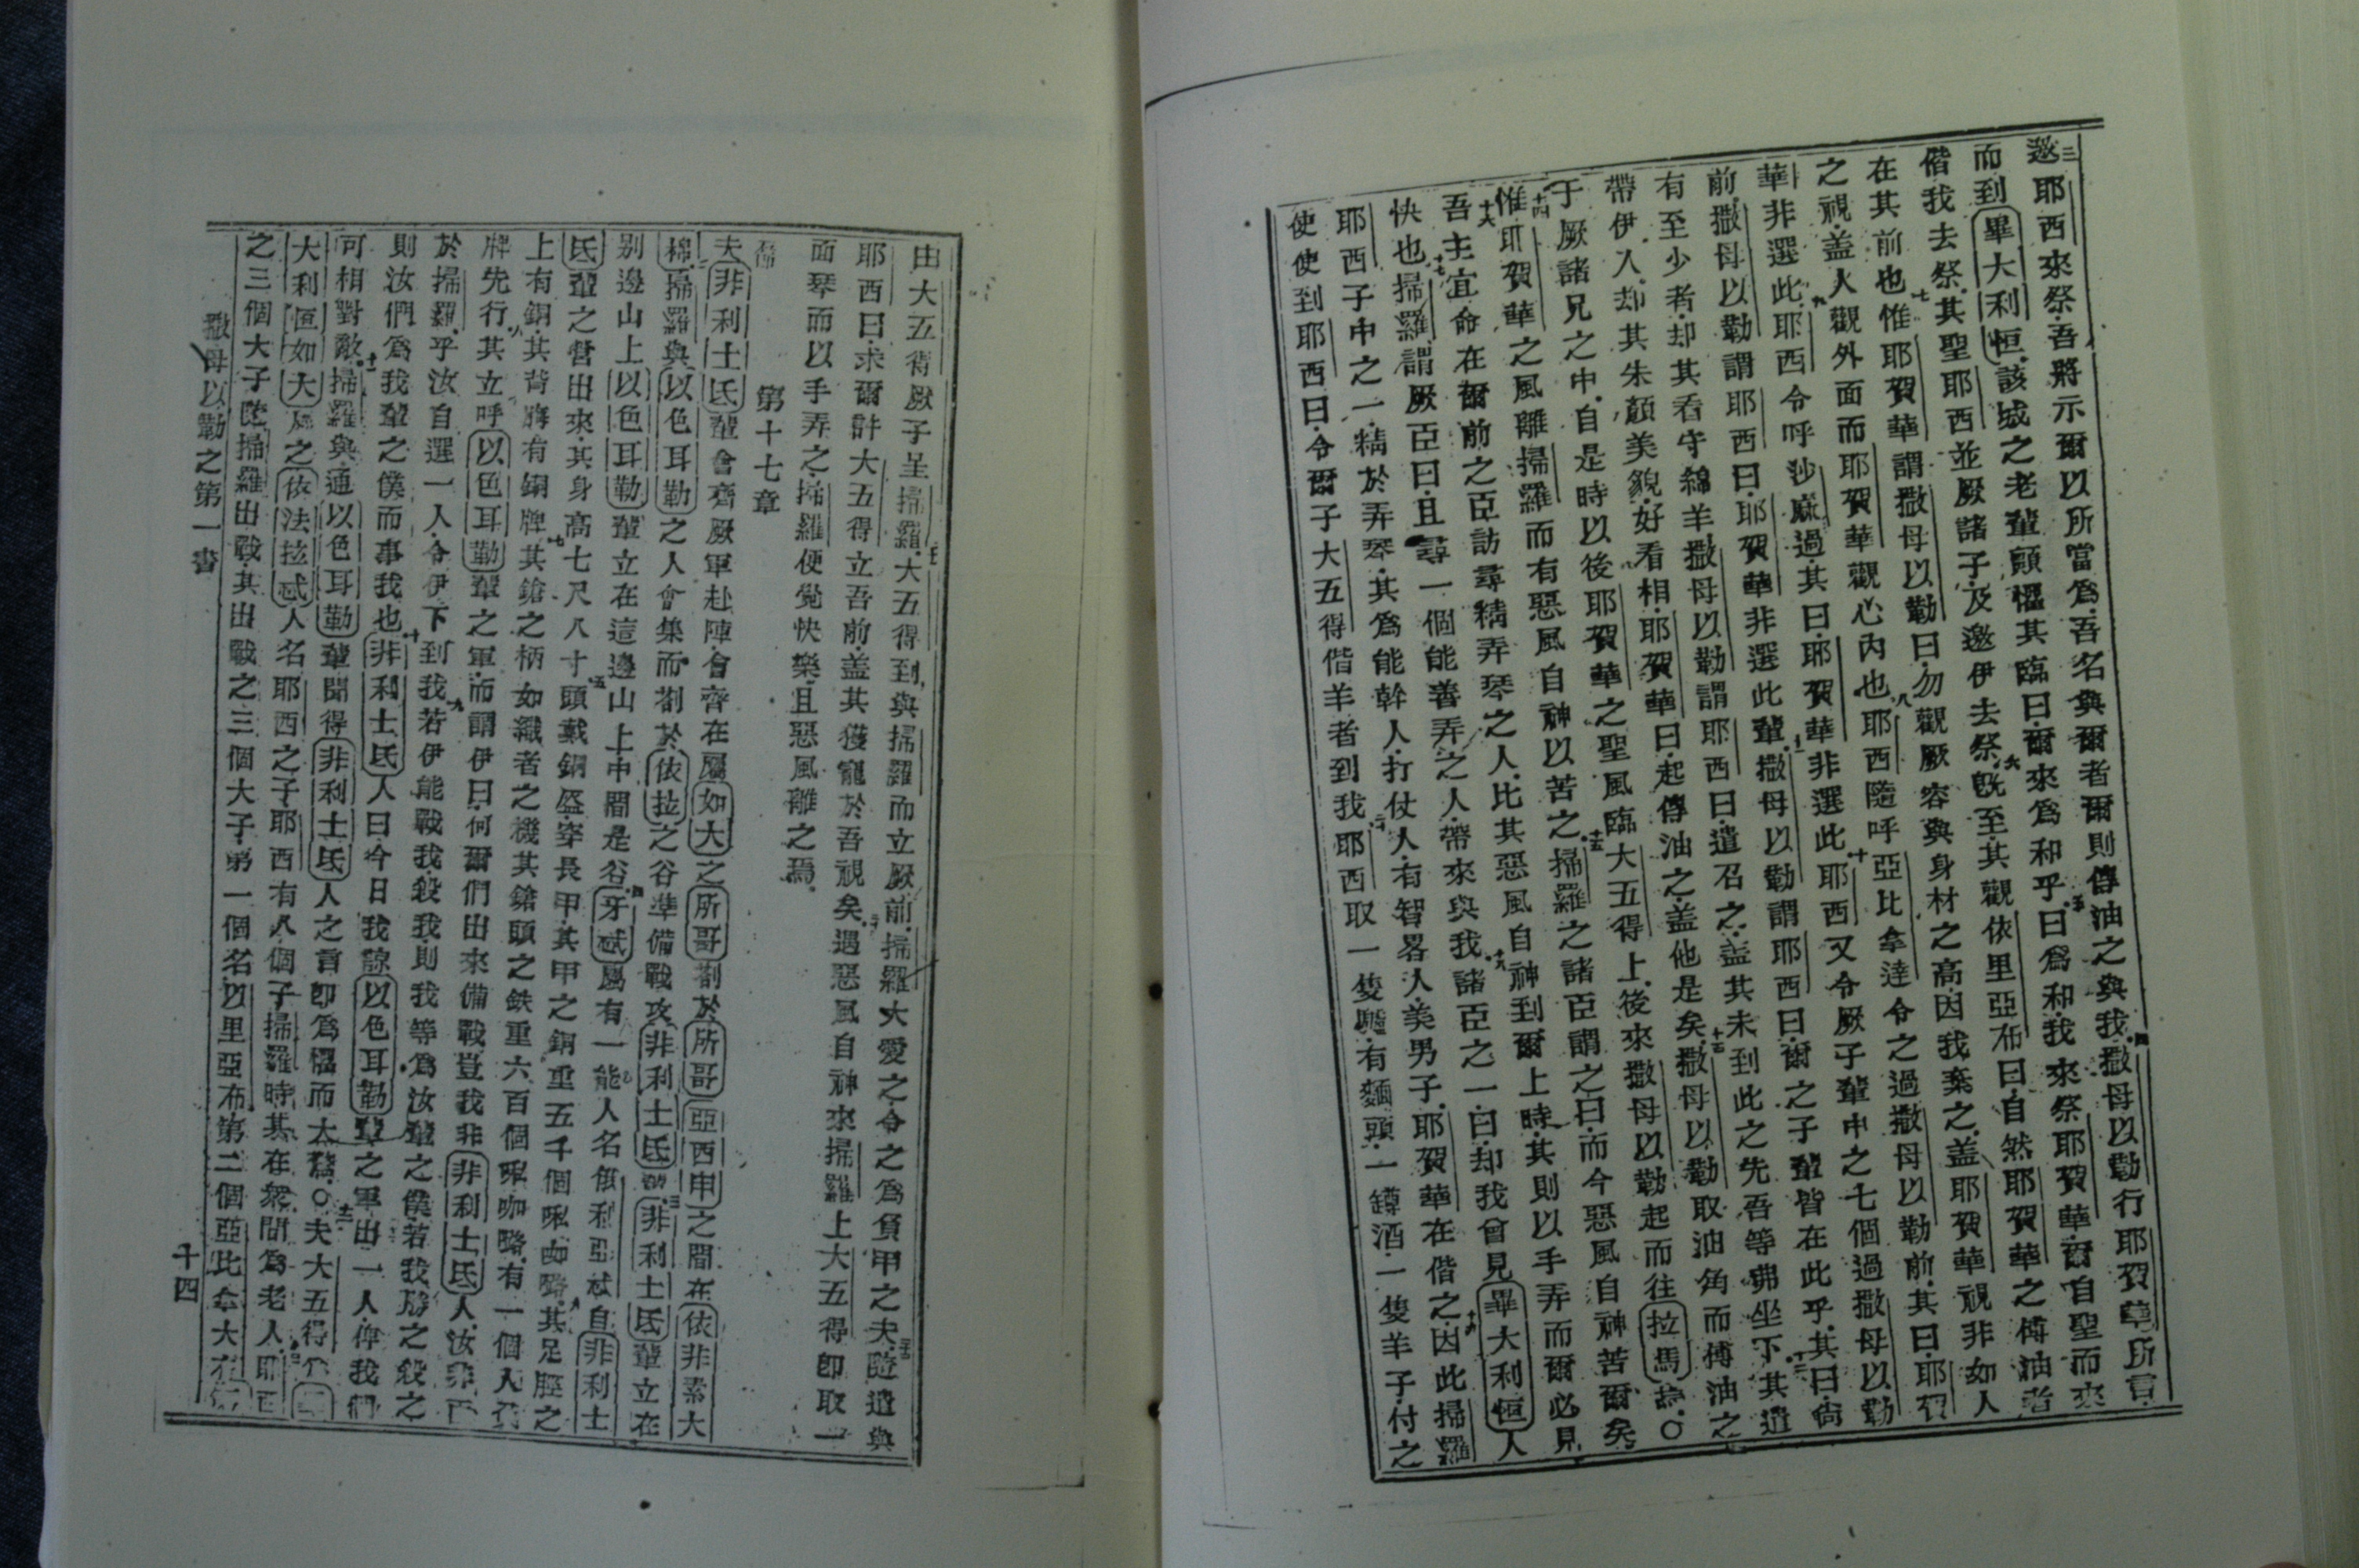 三邀耶西來祭吾將示爾以所當爲吾名與爾者爾則傅油之與我四撒母以勒行耶賀華所言
而到畢大利恒該城之老輩顫慄其臨曰爾來爲和乎五曰爲和我來祭耶賀華爾自聖而來
偕我去祭其聖耶西並厥諸子及邀伊去祭六旣至其觀依里亞布曰自然耶賀華之傅油者
在其前也七惟耶賀華謂撒母以勒曰勿觀厥容與身材之高因我棄之蓋耶賀華視非如人
之視蓋人觀外面而耶賀華觀心內也八耶西隨呼亞比拿達令之過撒母以勒前其曰耶賀
華非選此九耶西令呼沙蔴過其曰耶賀華非選此十耶西又令厥子輩中之七個過撒母以勒
前撒母以勒謂耶西曰耶賀華非選此輩十一撒母以勒謂耶西曰爾之子輩皆在此乎其曰尙
有至少者却其看守綿羊撒母以勒謂耶西曰遣召之蓋其未到此之先吾等弗坐下十二其遣
帶伊入却其朱顏美貌好看相耶賀華曰起傅油之蓋他是矣十三撒母以勒取油角而傅油之
于厥諸兄之中自是時以後耶賀華之聖風臨大五得上後來撒母以勒起而往拉馬○
十四惟耶賀華之風離掃羅而有惡風自神以苦之十五掃羅之諸臣謂之曰而今惡風自神苦爾矣
十六吾主宜命在爾前之臣訪尋精弄琴之人比其惡風自神到爾上時其則以手弄而爾必見
快也十七掃羅謂厥臣曰且尋一個能善弄之人帶來與我十八諸臣之一曰却我曾見畢大利恒人
耶西子中之一精於弄琴其爲能幹人打仗人有智畧人美男子耶賀華在偕之十九因此掃羅
使使到耶西曰令爾子大五得偕羊者到我二十耶西取一隻驢有麵頭一罇酒一隻羊子付之
由大五得厥子呈掃羅大五得到與掃羅而立厥前掃羅大愛之令之爲負甲之夫隨遣與
耶西曰求爾許大五得立吾前蓋其獲寵於吾視矣遇惡風自神來掃羅上大五得卽取一
面琴而以手弄之掃羅便覺快樂且惡風離之焉
第十七章
夫非利士氐輩會齊厥軍赴陣會齊在屬如大之所哥剳於所哥亞西申之間在依非素大
棉掃羅與以色耳勒之人會集而剳於依拉之谷準備戰攻非利士氐三非利士氐輩立在
别邊山上以色耳勒輩立在這邊山上中間是谷四牙忒屬有一能人名俄利亞忒自非利士
氐輩之營出來其身高七尺八寸五頭戴銅盔穿長甲其甲之銅重五千個𠵽咖咯六其足脛之
上有銅其背膊有銅牌七其鎗之柄如織者之機其鎗頭之鉄重六百個𠵽咖咯有一個人
牌先行八其立呼以色耳勒輩之軍而謂伊曰何爾們出來備戰豈我非非利士氐人汝
於掃羅乎汝自選一人令伊下到我九若伊能戰我殺我則我等爲汝輩之僕若我勝之殺之
則汝們爲我輩之僕而事我也十非利士氐人曰今日我諒以色耳勒輩之軍出一人俾我們
可相對敵十一掃羅與通以色耳勒輩聞得非利士氐人之言卽爲慄而大驚○十二夫大五得
大利恒如大人之依法拉忒人名耶西之子耶西有八個子掃羅時其在衆間爲老人十三耶西
之三個大子隨掃羅出戰其出戰之三個大子第一個名以里亞布第二個亞比拿大
撒母以勒之第一書
十四